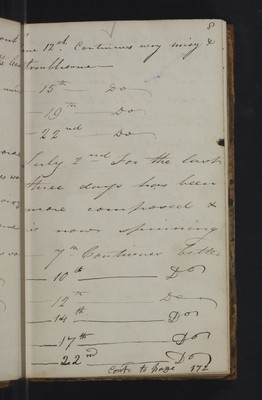 8
June 12th. Continues very noisy &
troublesome —
— 15th — Do
— 19th — Do
— 22nd — Do
July 2nd For the last
three days has been
more composed &
is now spinning
— 7th Continues better
— 10th — Do
— 12th — Do
— 14th — Do
— 17th — Do
— 22nd — Do
Contd. to page 172